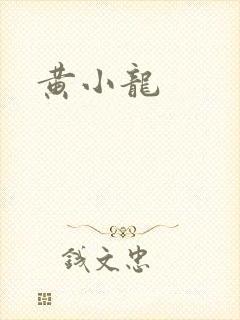 黄小龍
錢文忠